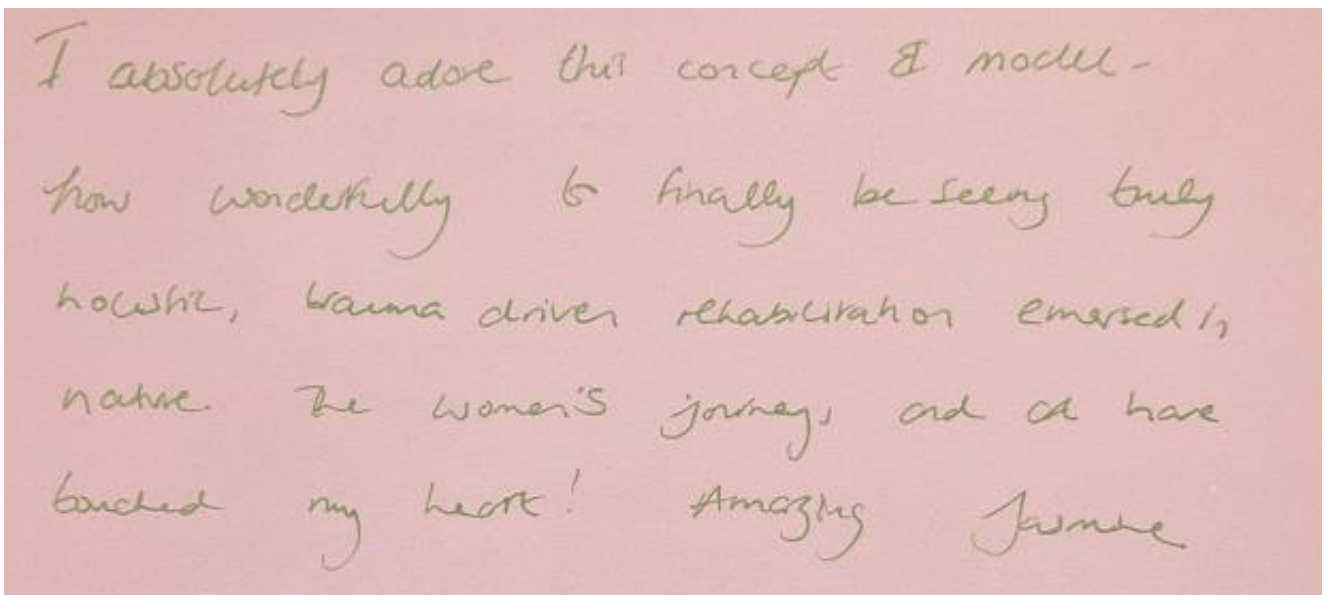 I absolutely adore this concept & model -
how wonderfully to finally be seeing truly
holistic, trauma driven rehabilitation emersed in
nature. The women's journeys and art have
touched my heart! Amazing Jasmine